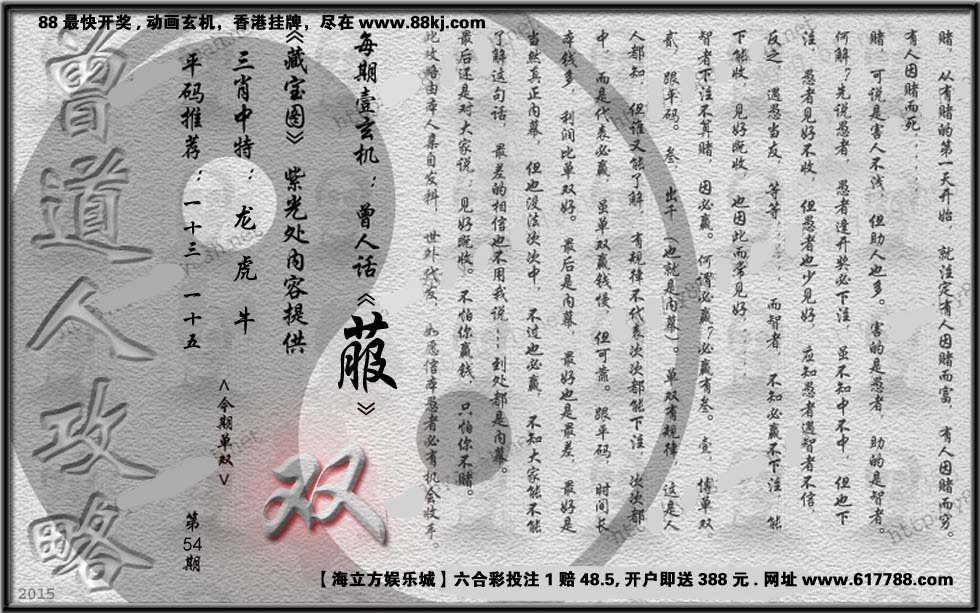 88最快开奖,动画玄机，香港挂牌，尽在 www.88kj.com
赌，从有赌的第一天开始，就注定有人因赌而富，有人因赌而穷。
有人因赌而死．．．．．．
赌，可说是害人不浅，但助人也多。害的是愚者，助的是智者。
何解？先说愚者，愚者逢开奖必下注，虽不知中不中，但也下
注，愚者见好不收，但愚者也少见好，应知愚者遇智者不信，
反之，遇愚当友，等等．．．．．．而智者，不知必赢不下注，能
下能收，见好既收，也因此而常见好．．．．．．
智者下注不算赌，因必赢。何谓必赢？必赢有叁。壹，博单双，
贰，跟平码。叁，出千（也就是内幕）。单双有规律，这是人
人都知，但谁又能了解，有规律不代表次次都能下注，次次都
中，而是代表必赢，虽单双赢钱慢，但可靠。跟平码，时间长
本钱多，利润比单双好。最后是内幕，最好也是最差，最好是
当然真正内幕，但也没法次次中，不过也必赢，不知大家能不能
了解这句话，最差的相信也不用我说…到处都是内幕。
最后还是对大家说：见好既收。不怕你赢钱，只怕你不赌。
此攻略由本人集自发料，世外代友，如愿信本愚者必有机会收手。
每期壹玄机：曾人话《菔》
《藏宝图》紫光处内容提供
三肖中特：龙 虎 牛
平码推荐：一十三 一十五
<今期单双>
双
第54期
曾道人攻略
【海立方娱乐城】六合彩投注1赔48.5,开户即送388元.网址 www.617788.com
2015